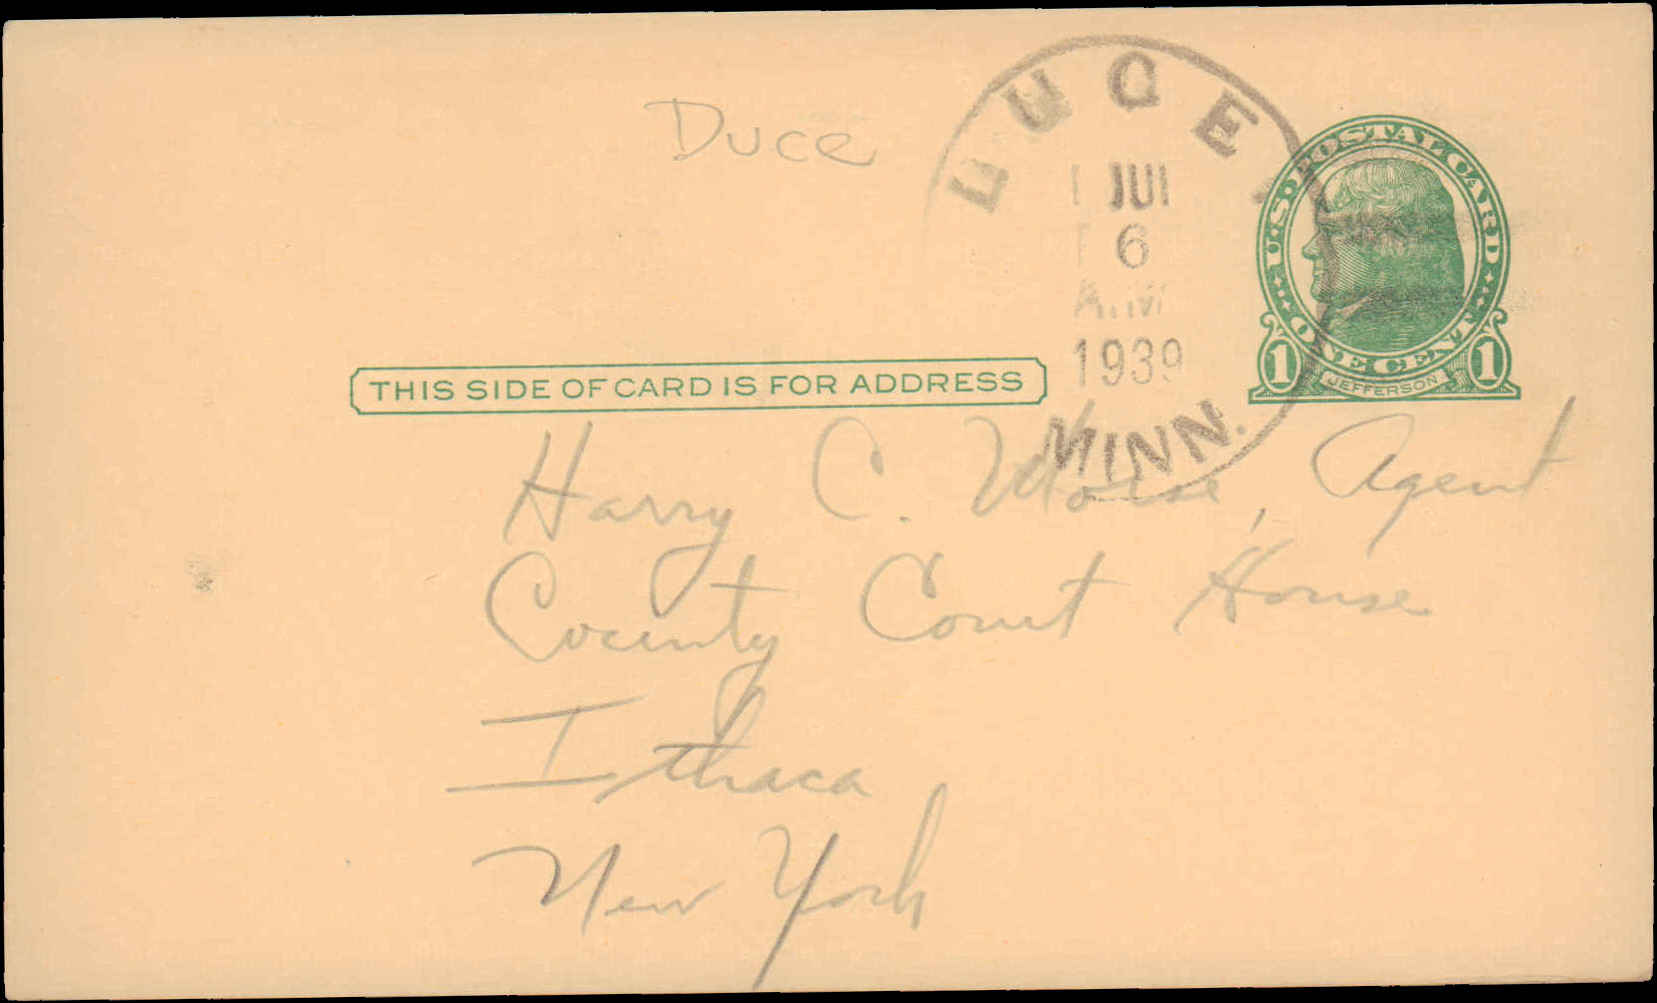 Duce
LUCE,
JUL
6
A.M
1939
MINN.
U·S·POSTAL CARD
ONE CENT
1 JEFFERSON 1
THIS SIDE OF CARD IS FOR ADDRESS
Harry C. Morse, Agent
County Court House
Ithaca
New York